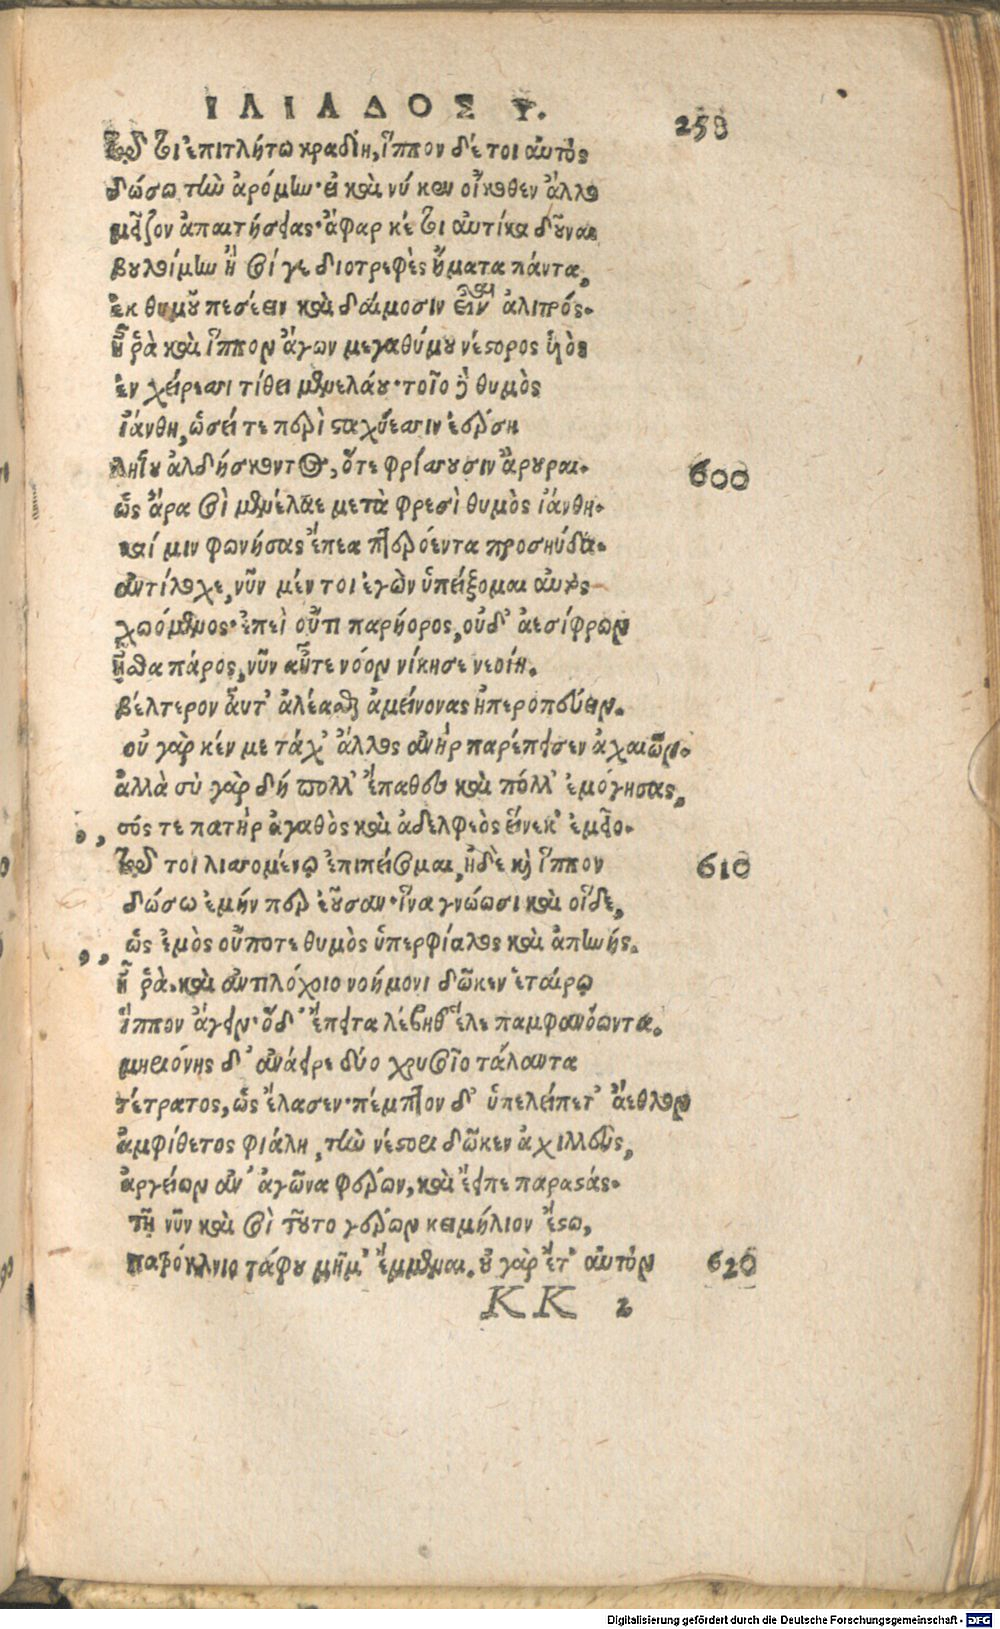 ΙΛΙΑΔΟΣ Υ.
259
τῷ τοι ἐπιτλήτω κραδίη, ἵππον δέ τοι αὐτὸς
δώσω τὴν ἀρόμην· εἰ καὶ νύ κεν οἴκοθεν ἄλλο
μεῖζον ἀπαιτήσειας· ἄφαρ κέ τοι αὐτίκα δοῦναι
βουλοίμην ἢ σοί γε διοτρεφὲς ἤματα πάντα,
ἐκ θυμοῦ πεσέειν καὶ δαίμοσιν εἶναι ἀλιτρός.
ἦ ῥὰ καὶ ἵππον ἄγων μεγαθύμου νέστορος υἱὸς
ἐν χείρεσσι τίθει μενελάου· τοῖο δὲ θυμὸς
ἰάνθη, ὡσείτε περὶ σταχύεσσιν ἐέρση
ληΐου ἀλδήσκοντος, ὅτε φρίσσουσιν ἄρουραι.
600
ὣς ἄρα σοὶ μενέλαε μετὰ φρεσὶ θυμὸς ἰάνθη.
καί μιν φωνήσας ἔπεα πτερόεντα προσηύδα.
ἀντίλοχε, νῦν μέν τοι ἐγὼν ὑπείξομαι αὐτὸς
χωόμενος· ἐπεὶ οὔτι παρήορος, οὐδ' ἀεσίφρων
ἦσθα πάρος, νῦν αὖτε νόον νίκησε νεοίη.
βέλτερον αὖτ' ἀλέασθαι ἀμείνονας ἠπεροπεύειν.
οὐ γὰρ κέν με τάχ' ἄλλος ἀνὴρ παρέπεισεν ἀχαιῶν.
ἀλλὰ σὺ γὰρ δὴ πολλ' ἔπαθες καὶ πόλλ' ἐμόγησας,
„ σός τε πατὴρ ἀγαθὸς καὶ ἀδελφεὸς εἵνεκ' ἐμεῖο.
τῷ τοι λισσομένῳ ἐπιπείσομαι, ἠδὲ καὶ ἵππον
610
δώσω ἐμήν περ ἐοῦσαν· ἵνα γνώωσι καὶ οἵδε,
„ ὡς ἐμὸς οὔποτε θυμὸς ὑπερφίαλος καὶ ἀπηνής.
ἦ ῥὰ. καὶ ἀντιλόχοιο νοήμονι δῶκεν ἑταίρῳ
ἵππον ἄγειν· ὁ δ' ἔπειτα λέβηθ' ἕλε παμφανόωντα.
μηριόνης δ' ἀνάειρε δύο χρυσοῖο τάλαντα
τέτρατος, ὡς ἔλασεν· πέμπτον δ' ὑπελείπετ' ἄεθλον
ἀμφίθετος φιάλη, τὴν νέστορι δῶκεν ἀχιλλεὺς,
ἀργείων ἀν' ἀγῶνα φέρων, καὶ ἔειπε παραστάς.
τῆ νῦν καὶ σοὶ τοῦτο γέρων κειμήλιον ἔστω,
πατρόκλοιο τάφου μνῆμ' ἔμμεναι. οὐ γὰρ ἔτ' αὐτὸν
620
KK 2
Digitalisierung gefördert durch die Deutsche Forschungsgemeinschaft - DFG